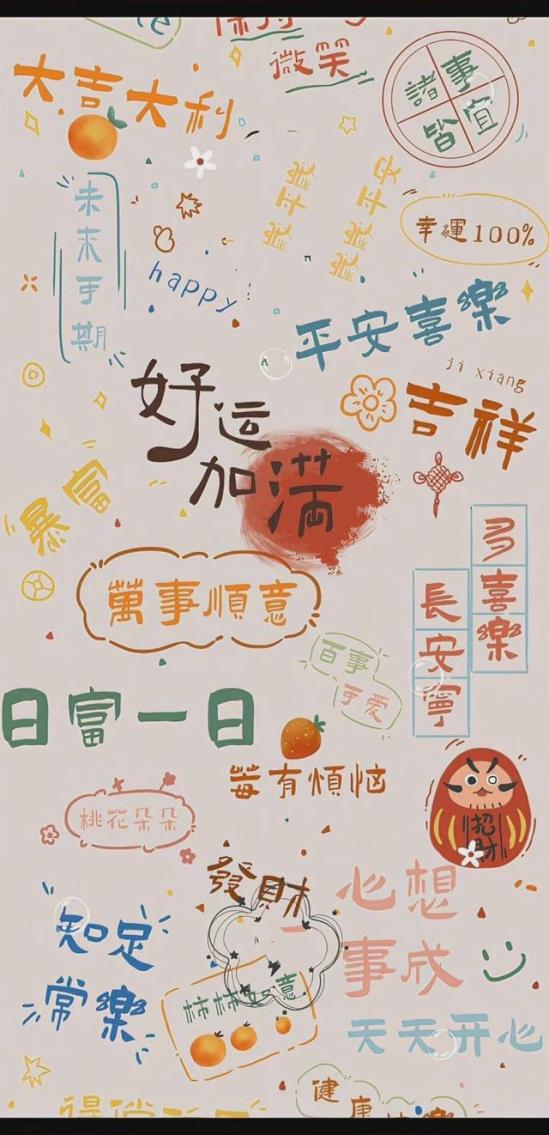 微笑
大吉大利
諸事
皆宜
未来可期
歲歲平安
幸運100%
happy
平安喜樂
ji xiang
吉祥
好运
加满
暴富
多喜樂
長安寧
萬事順意
百事
可爱
日富一日
莓有煩恼
桃花朵朵
招財
發財
心想
事成
知足
常樂
柿柿如意
天天开心
健
康